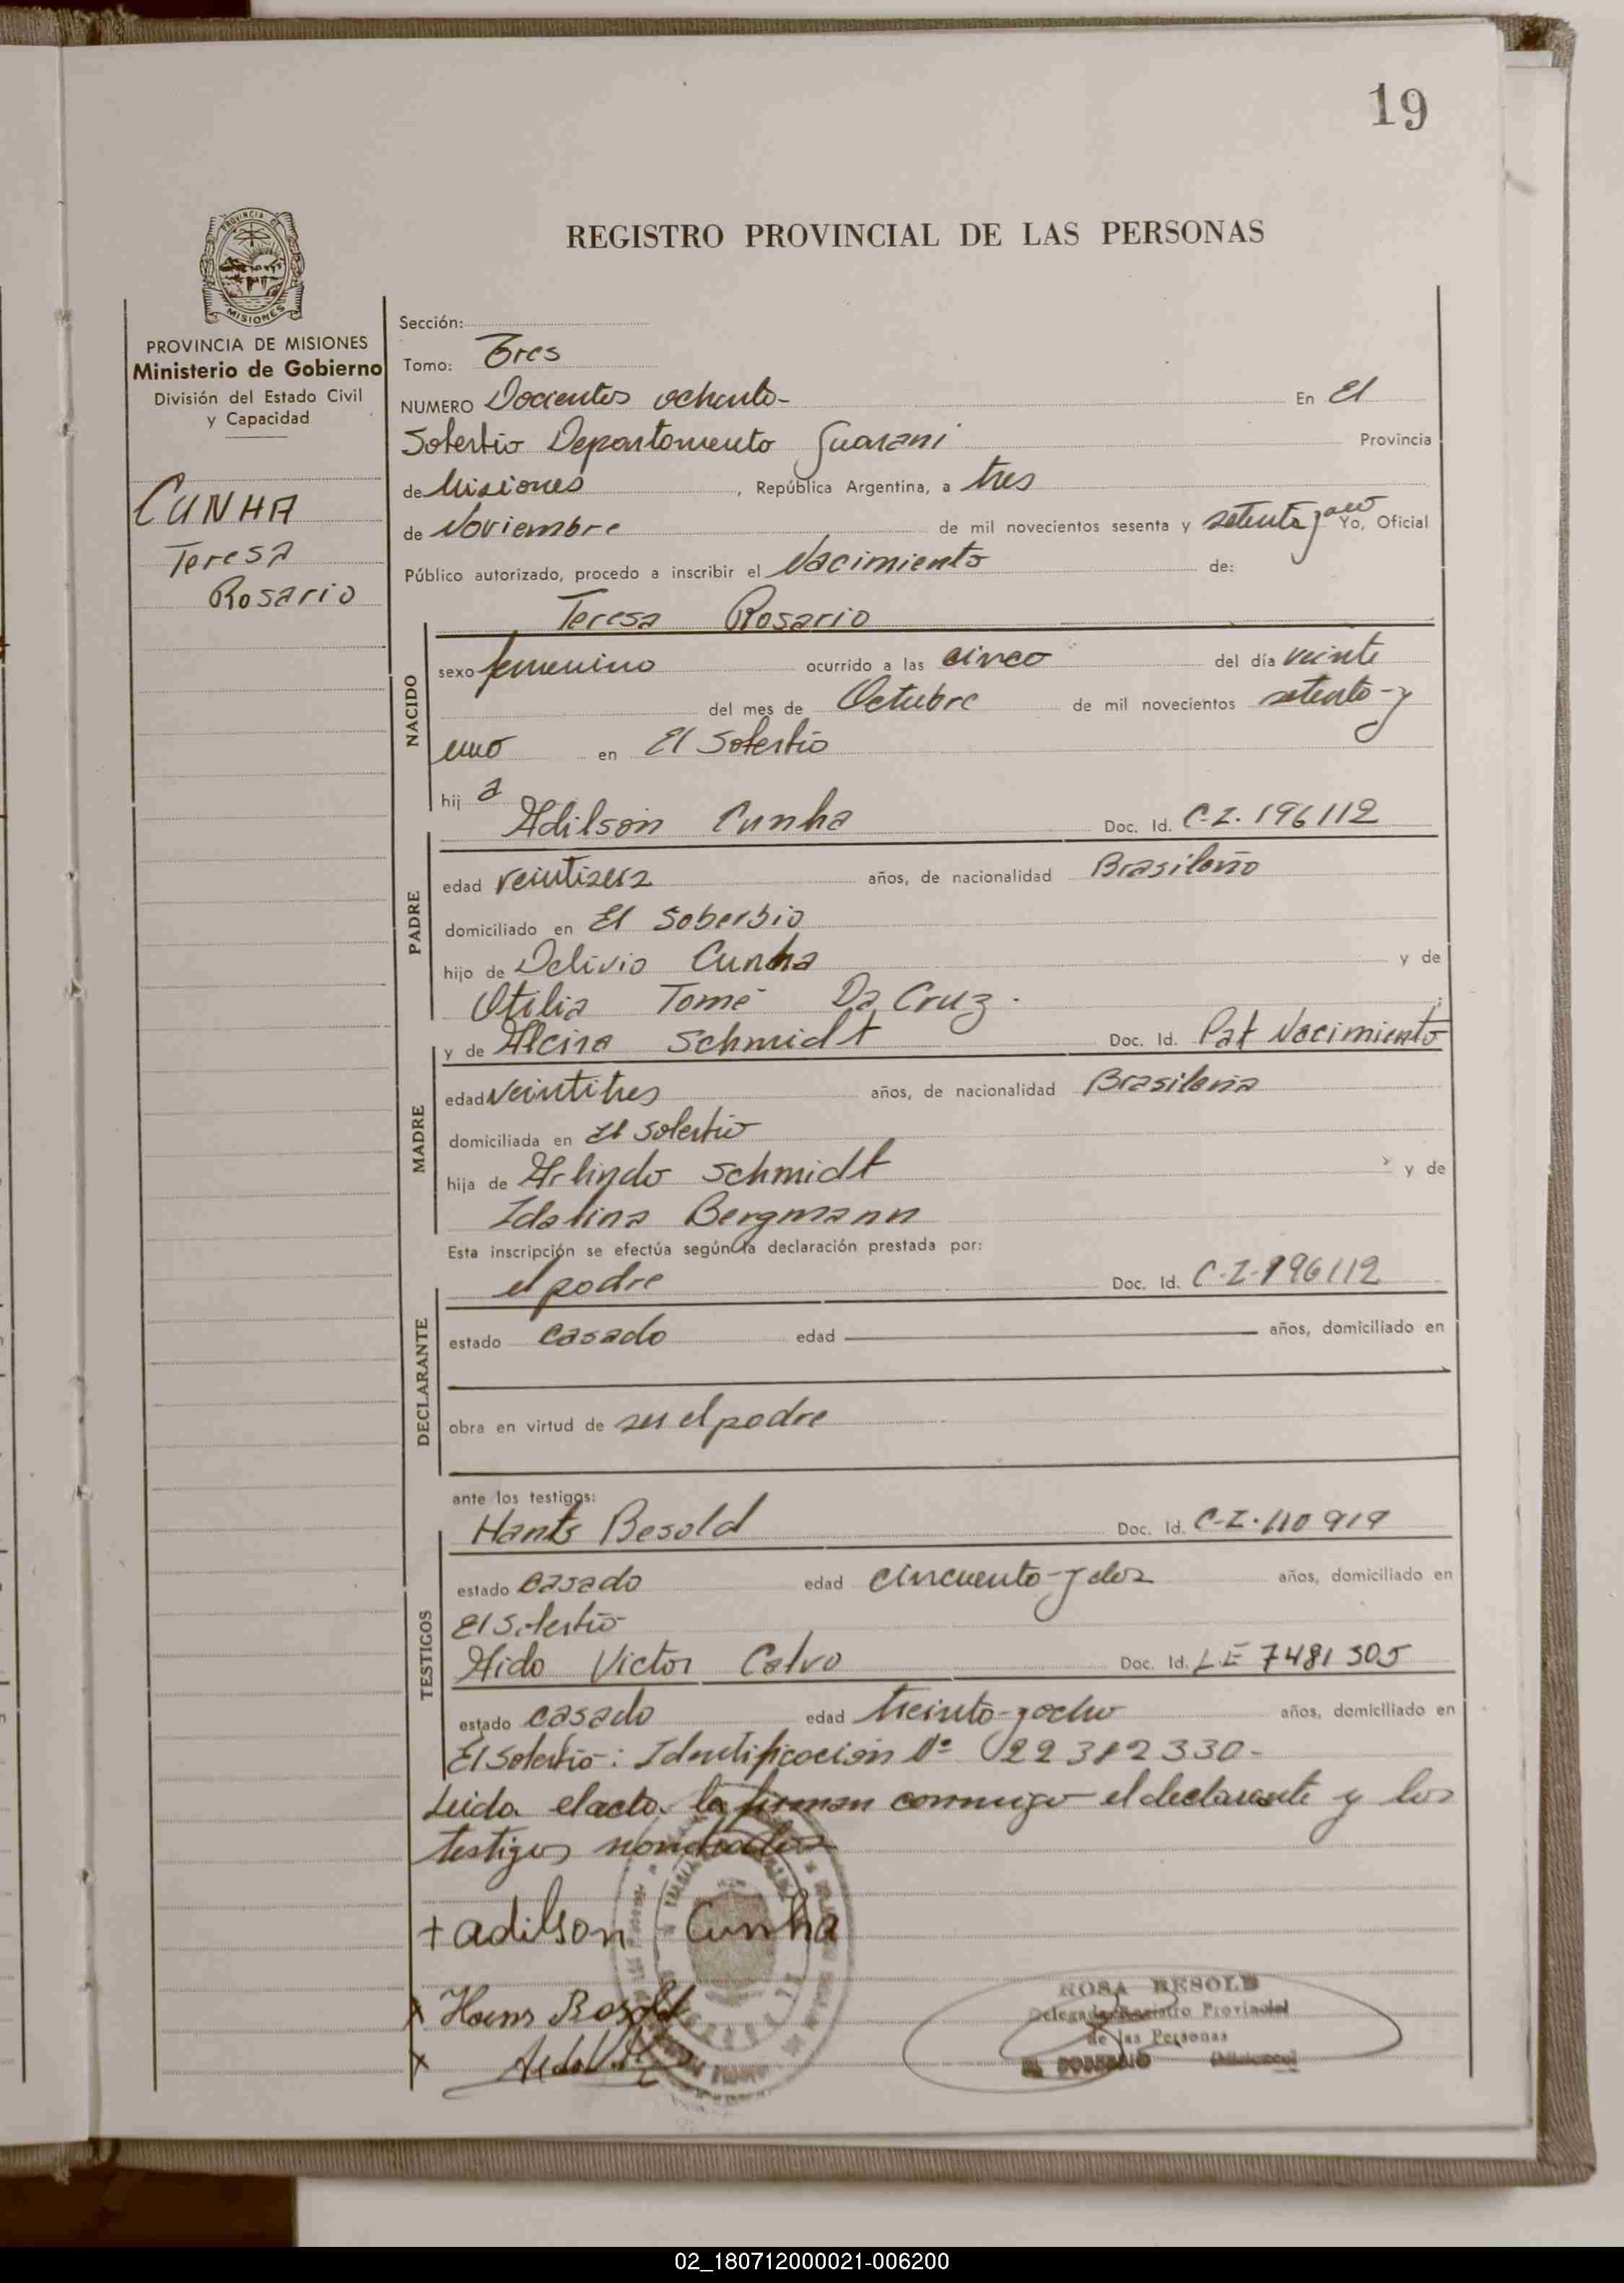 19
REGISTRO PROVINCIAL DE LAS PERSONAS
PROVINCIA DE
MISIONES
PROVINCIA DE MISIONES
Ministerio de Gobierno
División del Estado Civil
y Capacidad
CUNHA
Teresa
Rosario
Sección:
Tomo: Tres
NUMERO Docientos ochenta- En El
Soberbio Departamento Guarani Provincia
de Misiones, República Argentina, a tres
de Noviembre de mil novecientos sesenta y setenta y uno Yo, Oficial
Público autorizado, procedo a inscribir el Nacimiento de:
Teresa Rosario
NACIDO
sexo femenino ocurrido a las cinco del día veinte
del mes de Octubre de mil novecientos setenta-y
uno en El Soberbio
hij a
Adilson Cunha Doc. Id. C.I. 196112
PADRE
edad veintiseis años, de nacionalidad Brasileño
domiciliado en El Soberbio
hijo de Delivio Cunha y de
Otilia Tomé Da Cruz.
y de Alcira Schmidt Doc. Id. Pat Nacimiento
MADRE
edad veintitres años, de nacionalidad Brasileña
domiciliada en El Soberbio
hija de Arlindo Schmidt y de
Idalina Bergmann
Esta inscripción se efectúa según la declaración prestada por:
el padre Doc. Id. C-I-196112
DECLARANTE
estado casado edad años, domiciliado en
obra en virtud de ser el padre
ante los testigos:
Hants Besold Doc. Id. C-I.110919
TESTIGOS
estado casado edad cincuenta-y dos años, domiciliado en
El Soberbio
Aldo Victor Calvo Doc. Id. LE 7481305
estado casado edad treinta-y ocho años, domiciliado en
El Soberbio: Identificación Nº 22382330-
Leida el acta la firman conmigo el declarante y los
testigos nombrados
+ adilson Cunha
x Hans Besold
x Aldo
ROSA BESOLD
Delegada Registro Provincial
de las Personas
EL SOBERBIO (Misiones)
02_180712000021-006200